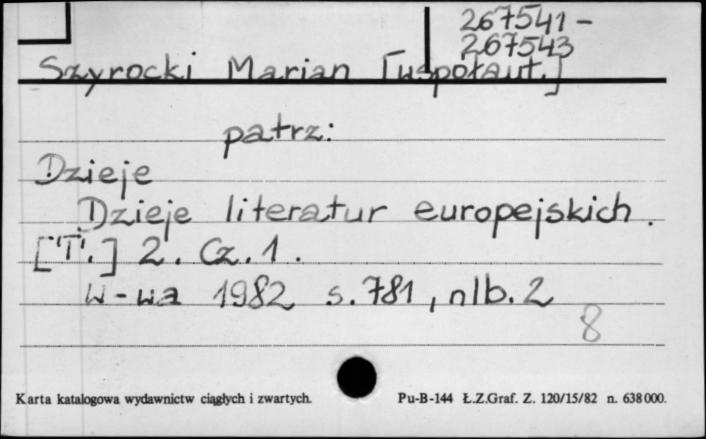 267541 -
267543
Szyrocki Marian [współaut.]
patrz:
Dzieje
Dzieje literatur europejskich.
[T.] 2. Cz. 1.
W-wa 1982 s. 781, nlb. 2
8
Karta katalogowa wydawnictw ciągłych i zwartych. Pu-B-144 Ł.Z.Graf. Z. 120/15/82 n. 638000.